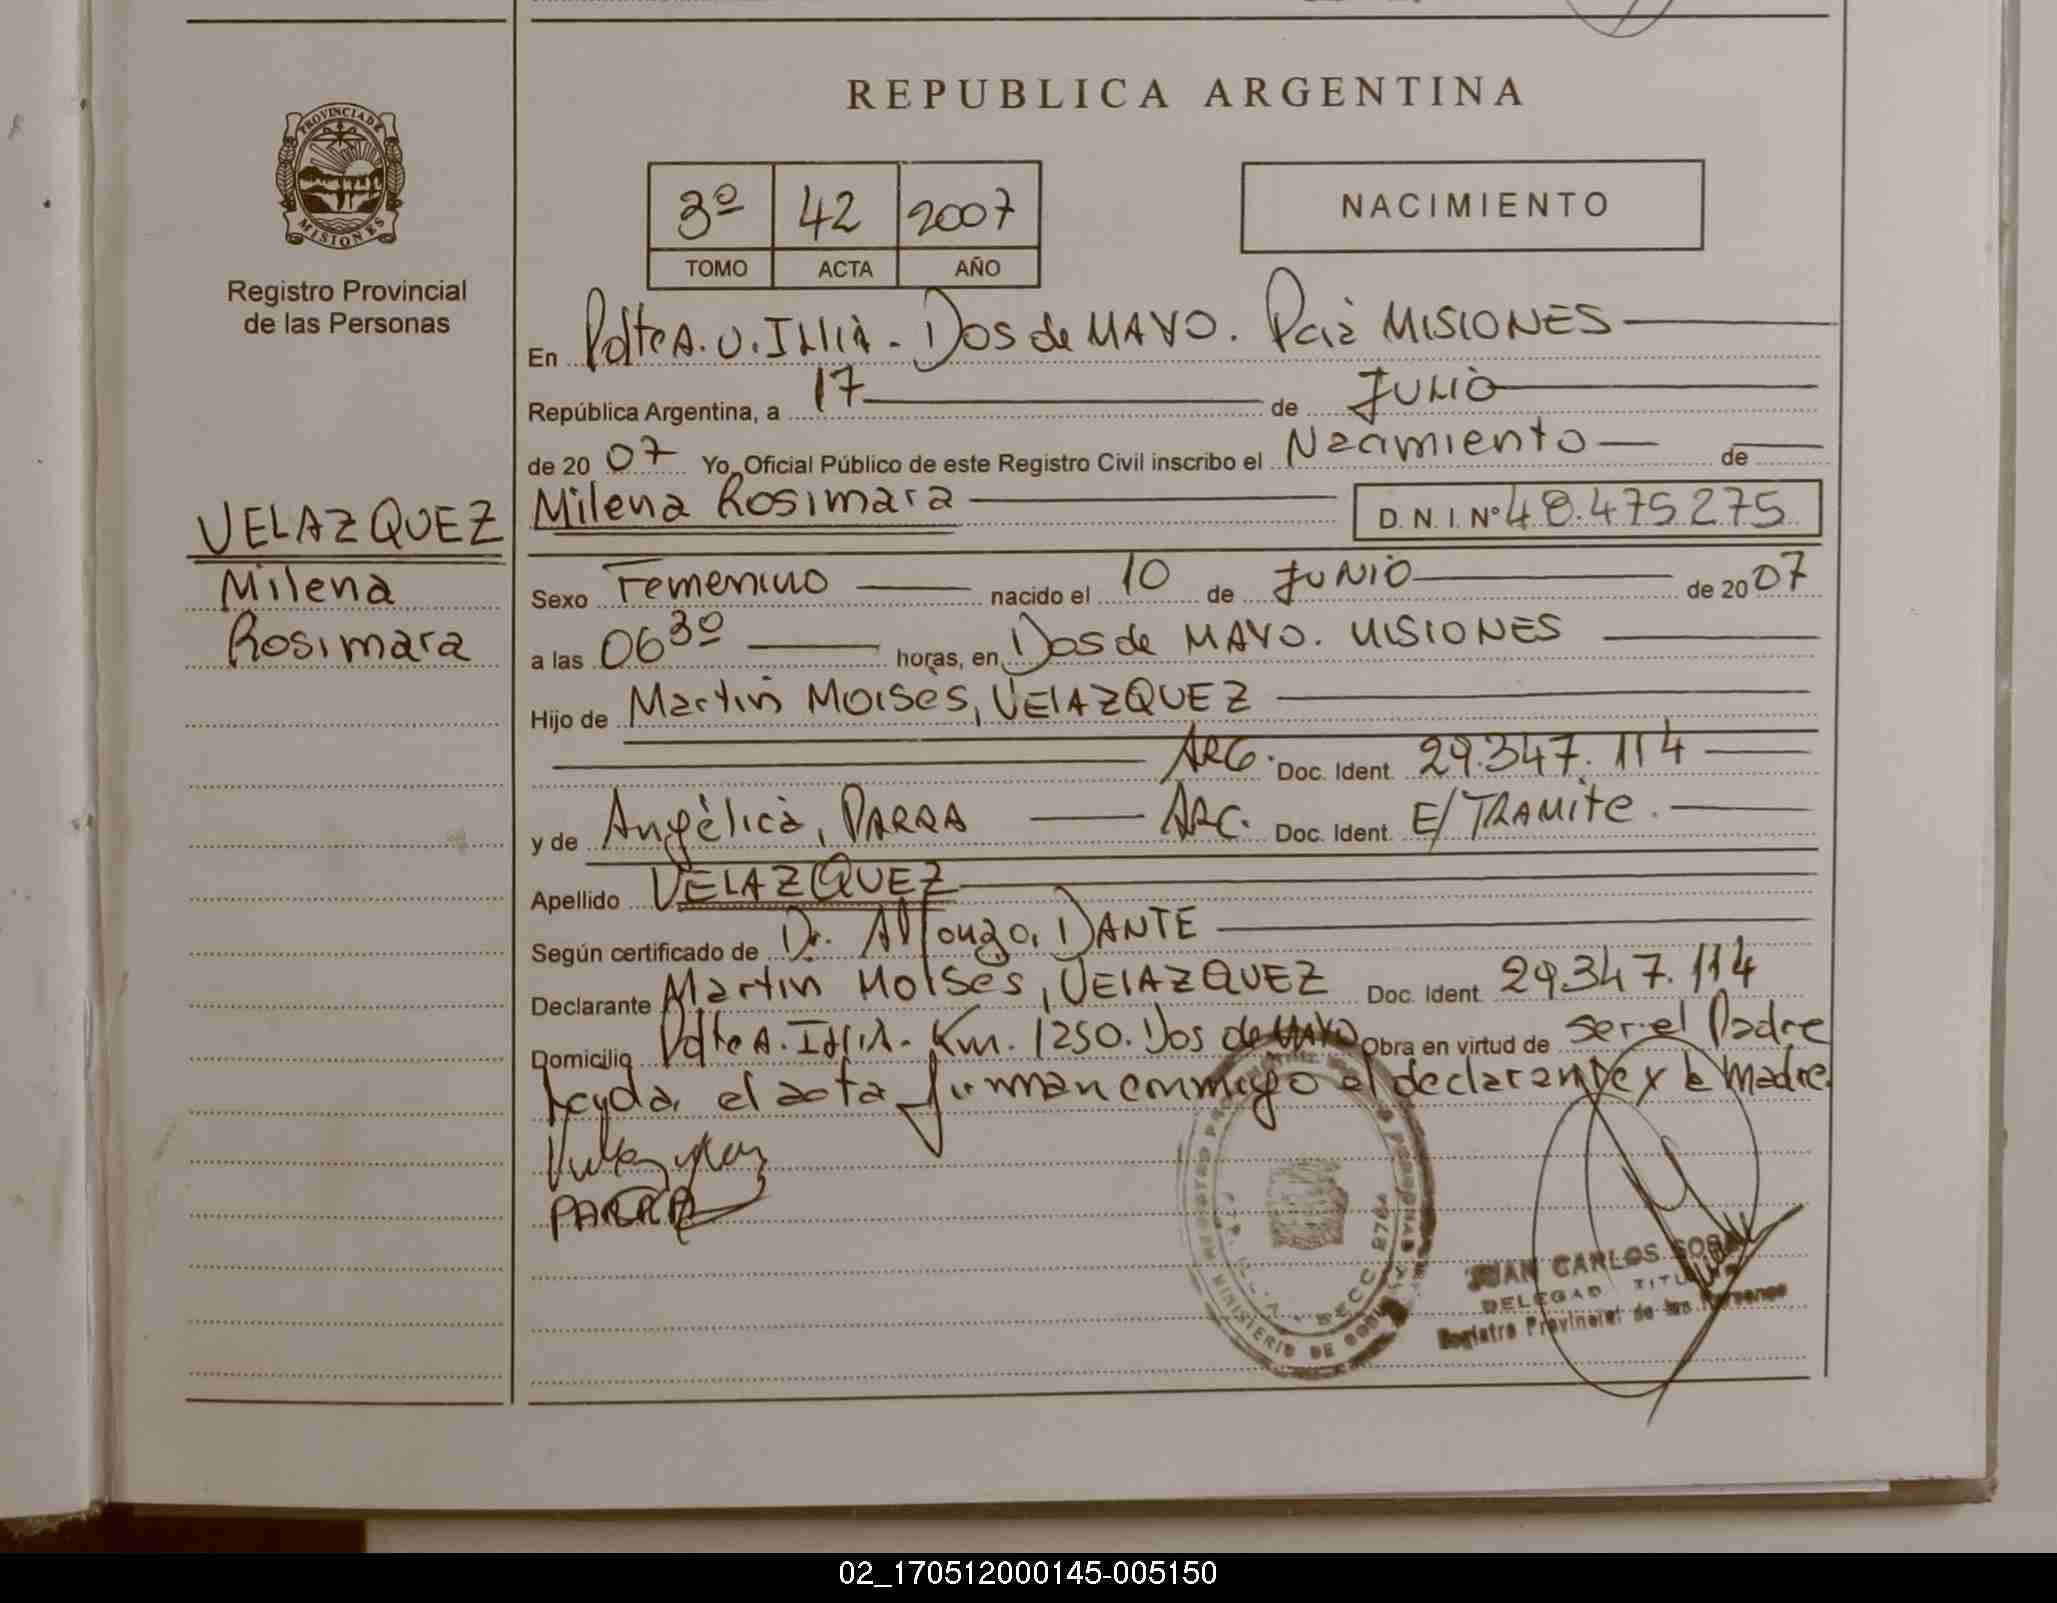 REPUBLICA ARGENTINA
PROVINCIA DE
MISIONES
Registro Provincial
de las Personas
3º 42 2007
TOMO ACTA AÑO
NACIMIENTO
En Pdte A. U. ILLIA - Dos de MAYO. Pcia MISIONES
República Argentina, a 17 de JULIO
de 20 07 Yo, Oficial Público de este Registro Civil inscribo el Nacimiento de
VELAZQUEZ
Milena
Rosimara
Milena Rosimara D. N. I. Nº 48.475.275
Sexo Femenino nacido el 10 de JUNIO de 20 07
a las 06 30 horas, en Dos de MAYO. MISIONES
Hijo de Martin Moises, VELAZQUEZ
ARG. Doc. Ident. 29.347.114
y de Angélica, PARRA ARG. Doc. Ident. E/TRAMITE.
Apellido VELAZQUEZ
Según certificado de Dr. Alfonzo, DANTE
Declarante Martin Moises, VELAZQUEZ Doc. Ident. 29.347.114
Domicilio Pdte A. Illia. Km. 1250. Dos de MAYO Obra en virtud de ser el Padre
Leyda el acta firman conmigo el declarante y la madre.
PARRA
MINISTERIO DE
JUAN CARLOS SOSA
DELEGAD TITULAR
Registro Provincial de las Personas
02_170512000145-005150